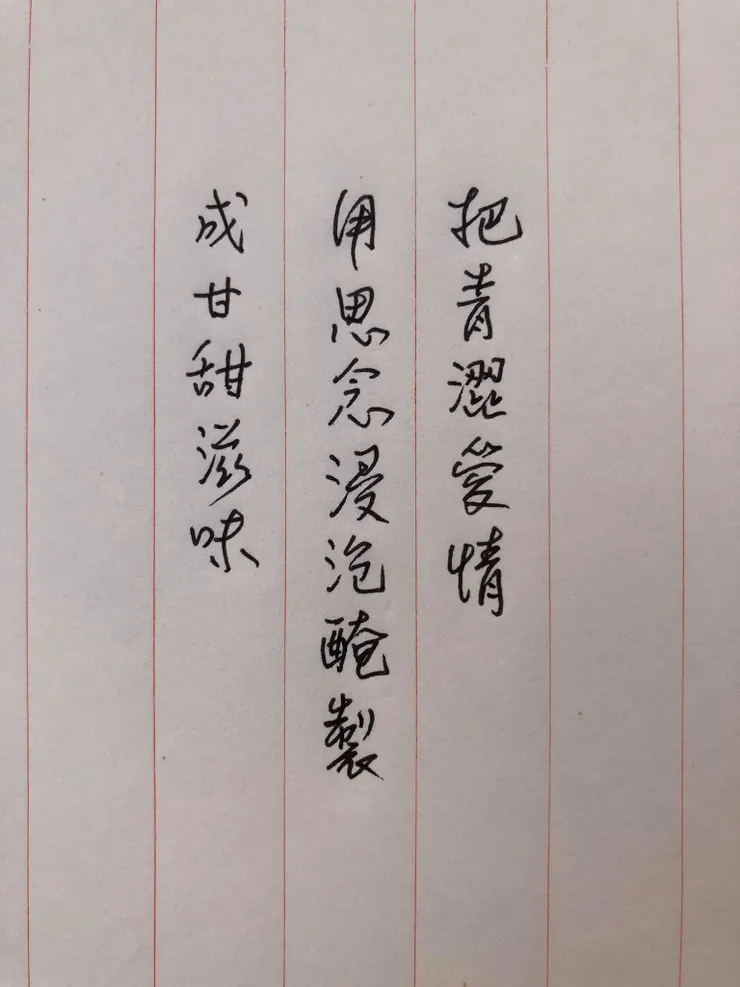 把青澀愛情
用思念浸泡醃製
成甘甜滋味